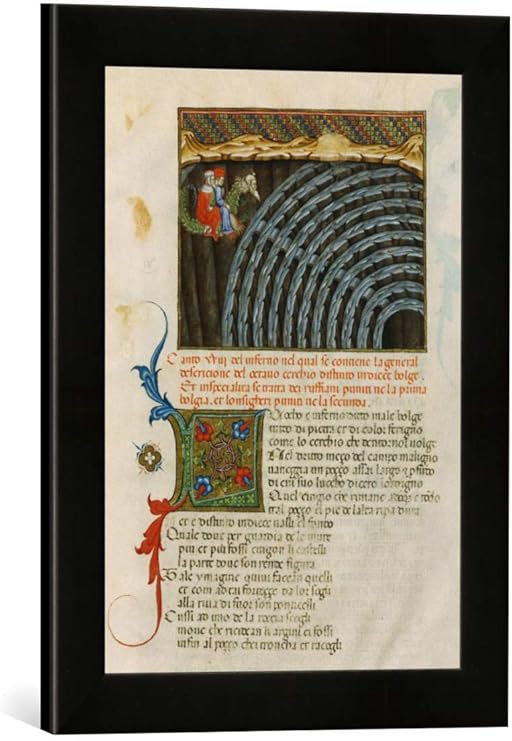 Canto XVIIJ del inferno nel qual se contiene la general
descricione del octavo cerchio distinto in diece bolge.
Et inspecialita se tratta dei ruffiani puniti ne la prima
bolgia. et lonsigheri puniti ne la seconda.
Luocho e inferno ditto male bolge
tutto di pietra et di color ferigno
come lo cerchio che dentorno volge
Nel dritto meço del campo maligno
vaneggia un poçço assai largo et profundo
di cui suo luocho dicero lordigno
Quel cinghio che rimane adoque e todo
tral poçço el pie de lalta ripa dura
et e distinto in diece valli el fondo
Quale dove per guardia de le mure
piu et piu fossi cingon li castelli
la parte dove son rende figura
Tale ymagine quivi facean quelli
et com ad tai forteççe da lor sogli
alla riva di fuor son ponticelli
Cussi da imo de la roccia scogli
move che ricidean li argini et fossi
infin al poçço chei troncha et racogli